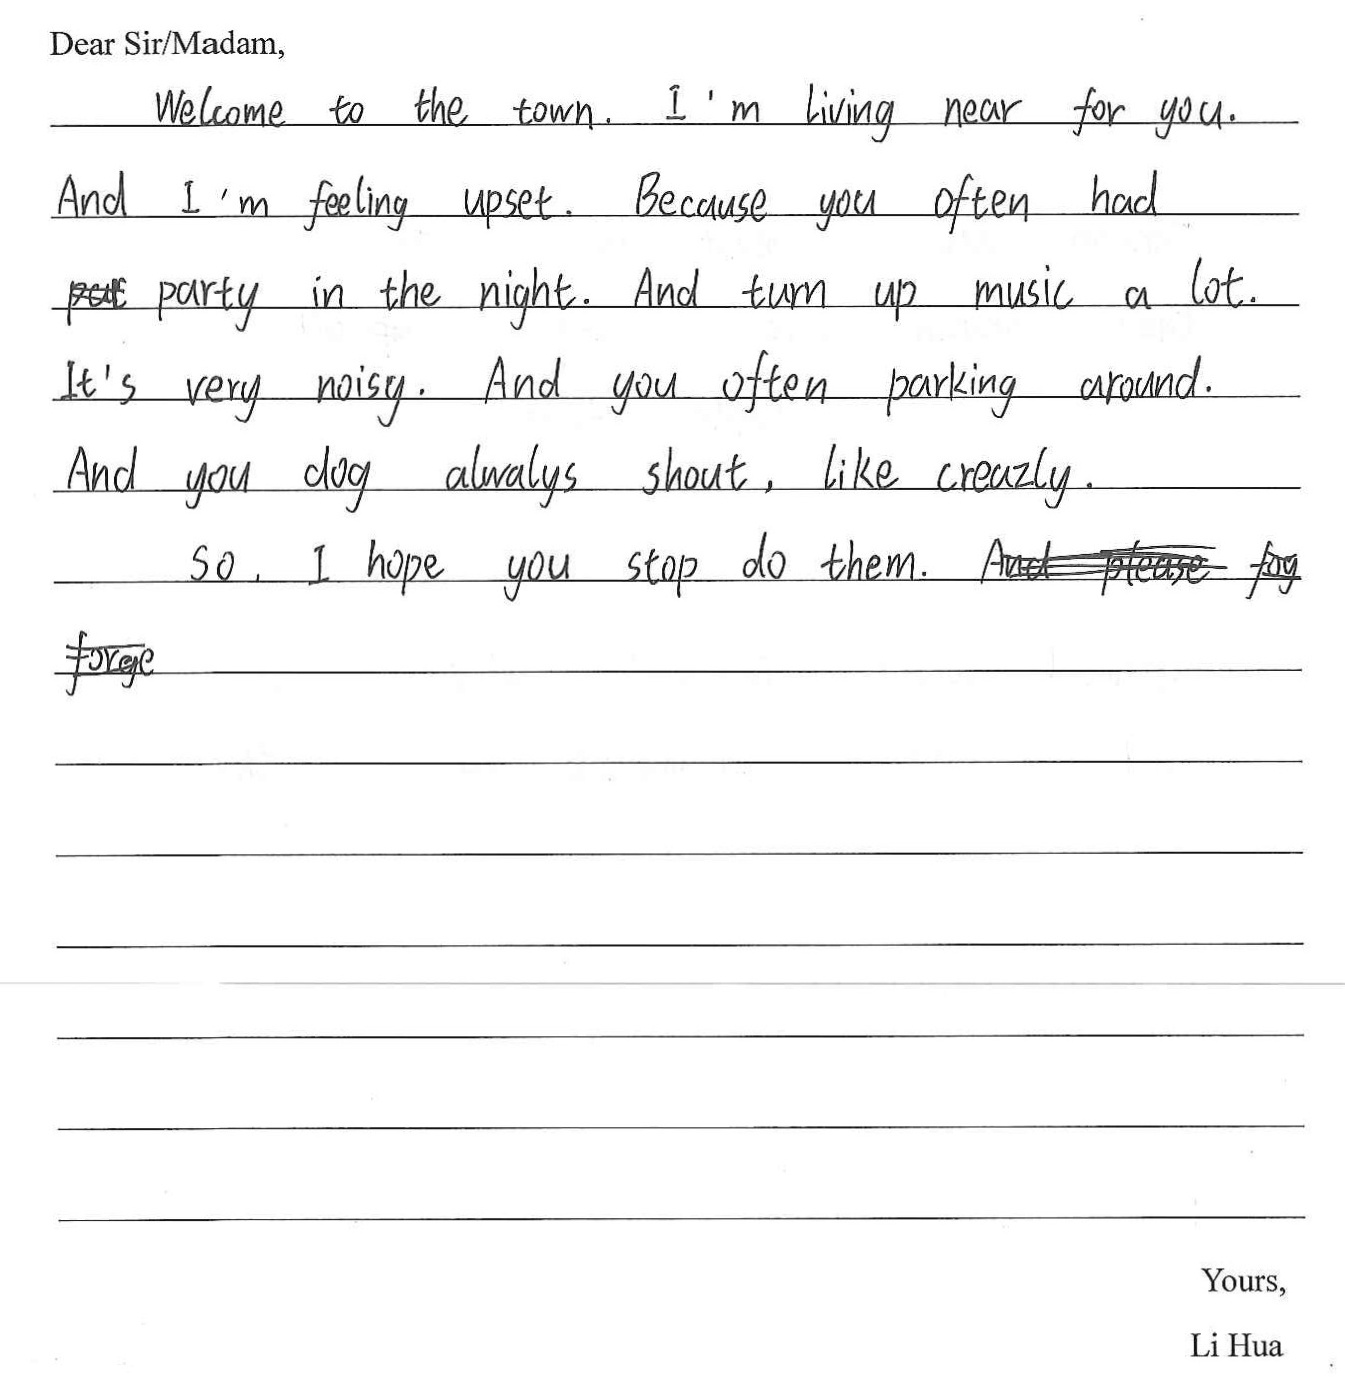 Dear Sir/Madam,
Welcome to the town. I'm living near for you.
And I'm feeling upset. Because you often had
party in the night. And turn up music a lot.
It's very noisy. And you often parking around.
And you dog alwalys shout, like creazly.
So, I hope you stop do them. And please fog
forge
Yours,
Li Hua